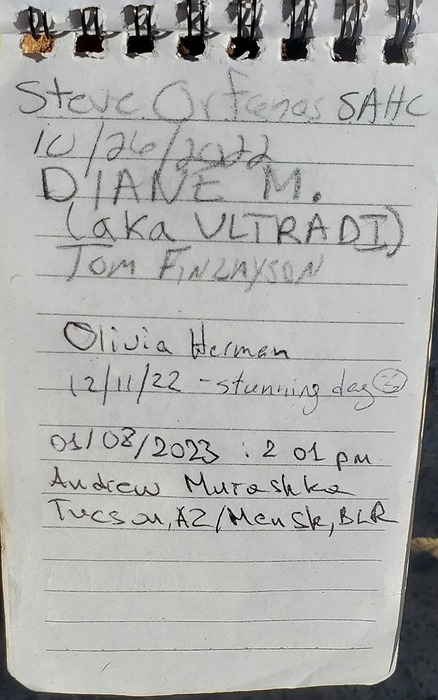 Steve Orfanos SAHC
10/26/2022
DIANE M.
(aka ULTRADI)
Tom FINLAYSON
Olivia Herman
12/11/22 - stunning day ☺
01/08/2023 : 2 01 pm
Andrew Murashka
Tucson, AZ/Mensk, BLR